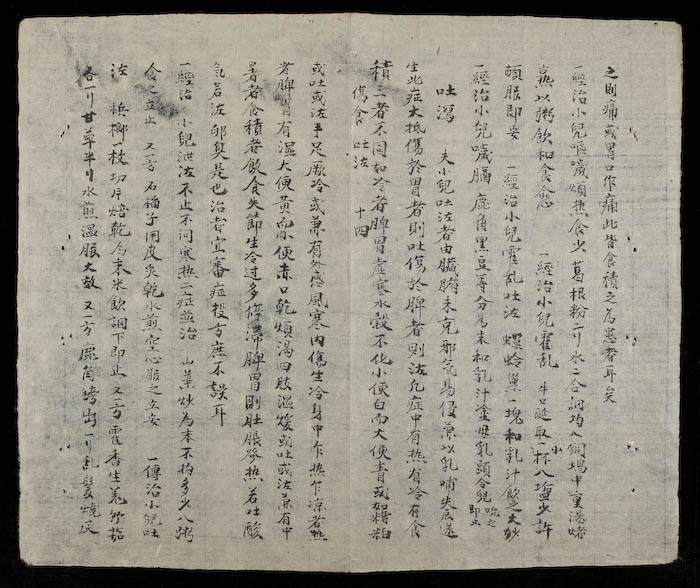 之則痛或胃口作痛此皆食積之為患者耳矣
一經治小兒嘔歲煩熱食少葛根粉二刂水二合調均入銅場中重湯煮
熹以粥飲和食食愈 一經治小兒霍乱 牛口延取一小杯入塩少許
頓服即安 一經治小兒霍乱吐泣 螺蛉巢一塊和乳汁飲之大妙
一經治小兒歲膈 鹿角黑豆等分為末和乳汁塗毋乳頭令兒吮之即止
吐瀉 夫小兒吐泣者由臟腑未克邪气易侵兼以乳哺失辰遂
生此症大抵傷於胃者則吐傷於脾者則泣凢症中有热有冷有食
積三者不同如冷者脾胃虛寒水穀不化小便白而大便青或如糟粕
傷食 吐泣 十四
或吐或泣手足厥冷或兼有外感風寒内傷生冷身中乍热乍凉者热
者脾胃有濕大便黄而小便赤口乾煩渴四肢温煖或吐或泣兼有中
暑者食積者飲食失節生冷过多停滯脾胃則肚脹發热若吐酸
气若泣 卵臭是也治者宜審症投方庶不誤耳
一經治 小兒泄泣不止不问寒热二症並治 山藥炒為末不拘多少入粥
食之立止 又一方 石榴子用皮炙乾水煎空心服之立安 一傳治小兒吐
泣 梹榔一枝切片焙乾為末米飲調下即止 又一方 霍香生羌竹茹
各一刂甘草半刂水煎温服大效 又一方 鹿角 一刂乱髮燒灰